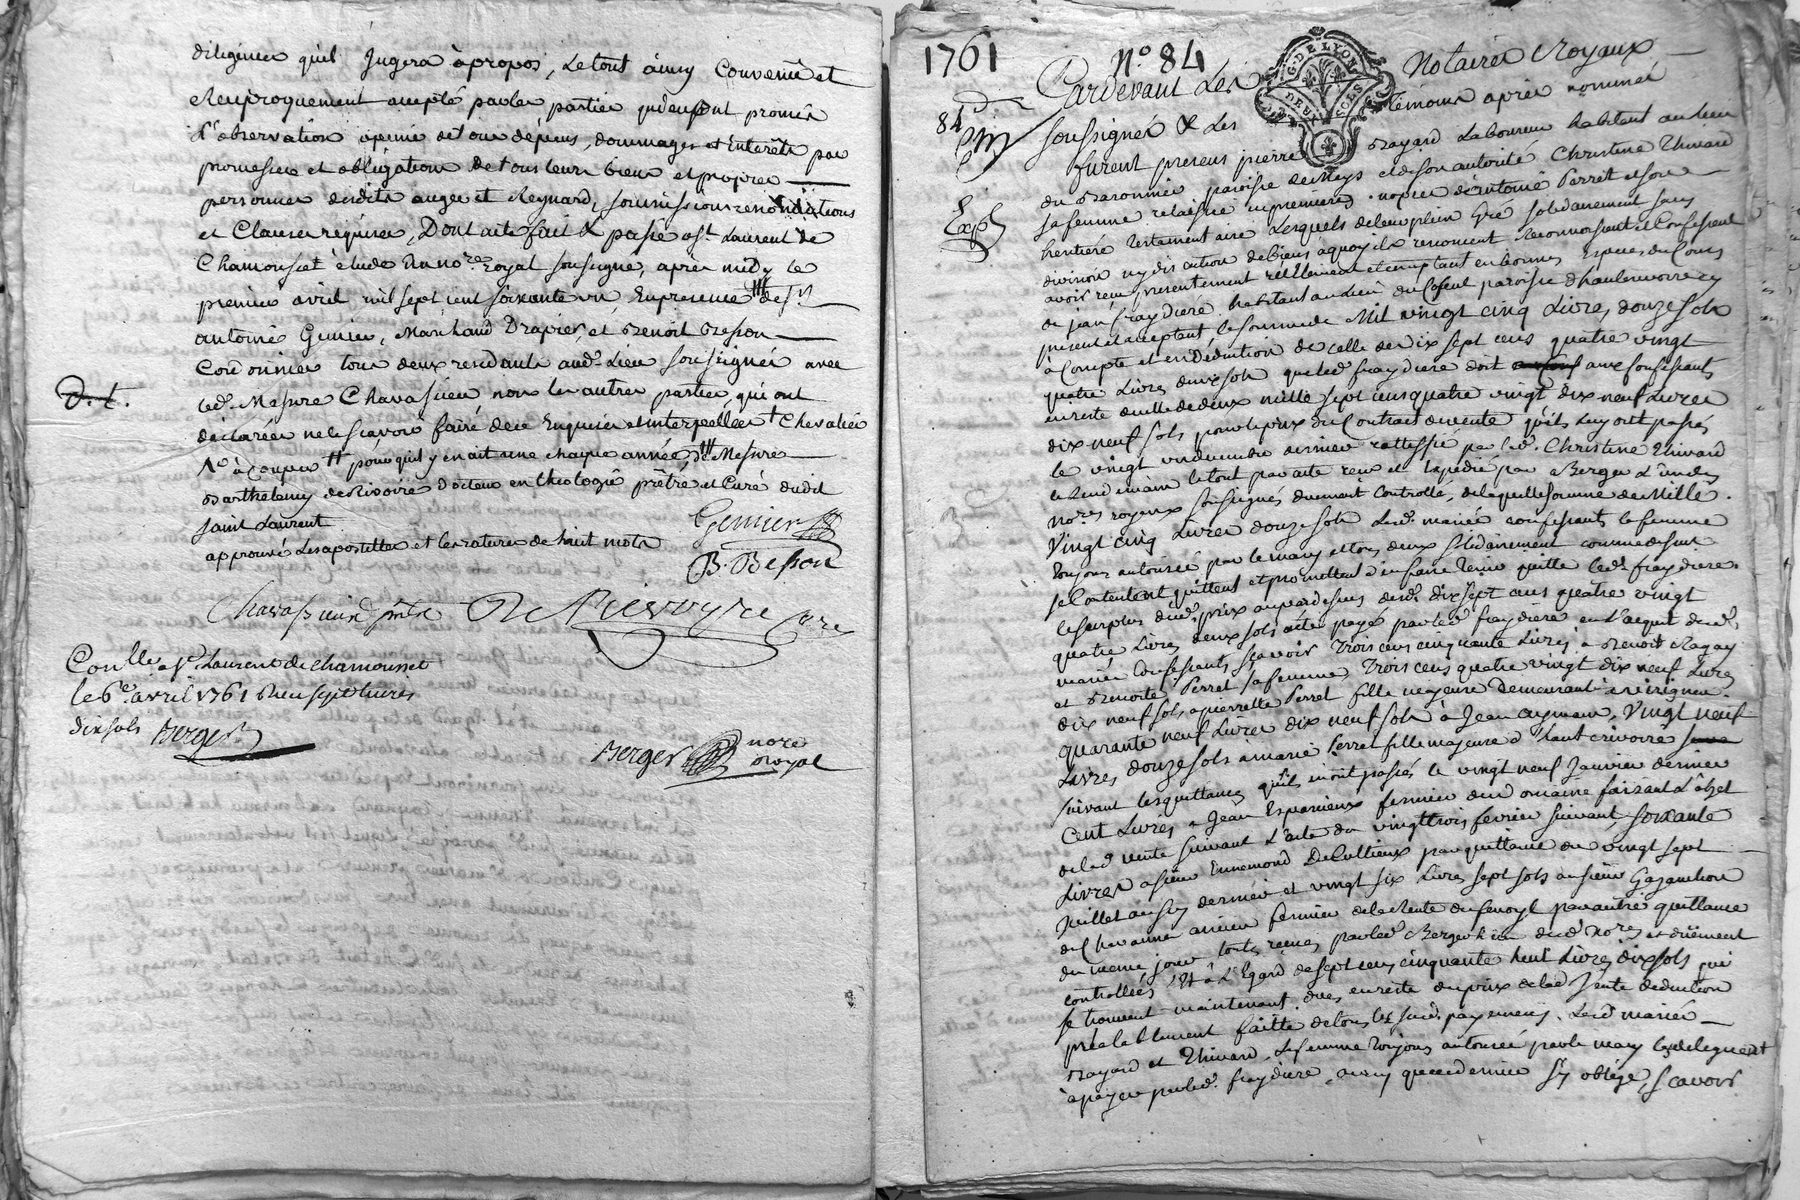 diligences qu'il Jugera àpropos, Le tout ainsy Convenu et
Reciproquement accepté par les parties qui de ont promis
L'observation a peine de tous dépens, dommages et Interets par
promesses et obligations de tous leurs biens et propres
personnes desdits auger et Reynard, soumissions renonciations
et Clauses requises, Dont acte fait & passé a St. Laurent de
Chamousset étude Du nore. royal soussigné, après midy le
premier avril mil sept cent soixante un En presence de sr
antoine Genier, Marchand Drapier, et Benoit Besson
Cordonnier tous deux residants aud. Lieu soussignés avec
led. Messire Chavassieu non les autres parties, qui ont
d.t.
déclarées ne le scavoir faire de ce Enquises et interpellées + Chevalier
à Couper # pour qu'il y en ait une chaque année, # Messire
Barthelemy de Rivoire Docteur en theologie prêtre et Curé dudit
saint Laurent
approuvé Les apostilles et les ratures de huit mots
Genier
B. Besson
Chavassieu De Rievoyre Curé
Conlle a St. Laurent de chamousset
le 6e avril 1761 Recu sept livres
dix sols Berger
Berger nore
royal
1761 No. 84
G. DE LYON
DEUX SOLS
Pardevant Les Notaires Royaux
84
soussignés & Les Témoins après nommés
Exp
furent presens pierre Bayard Laboureur habitant au Lieu
du Baronnier paroisse de Meys et de son autorité Christine Thivard
sa femme relaissée en premieres nopces d'Antoine Perret et son
heritiere Testamentaire Lesquels de leur plein Gré solidairement sans
division ny discution de biens a quoy ils renoncent Reconnoissent et Confessent
avoir reçu presentement reéllement et comptant en bonnes Especes du Cours
de jean fraydiere habitant au Lieu du paroisse d'haulterivoire cy
present et acceptant la somme de Mil vingt cinq Livres, douze sols
à Compte et en Déduction de celle de Dix sept cens quatre vingt
quatre Livres deux sols que led. fraydiere doit aux confessants
en reste de celle de deux mille sept cens quatre vingt dix neuf Livres
dix neuf sols pour le prix du Contract de vente qu'ils Luy ont passés
le vingt un decembre dernier rattiffié par lad. Christine Thivard
le Lendemain le tout par acte reçu et Expedié par Berger L'un des
nores royaux soussignés duement Controllé, de laquelle somme de Mille
Vingt cinq Livres douze sols Lesd. mariés confessants la femme
toujours autorisée par le mary et tous deux solidairement comme dessus
se Contentent quittent et promettent d'en faire Tenir quitte led. fraydiere.
le surplus dud. prix au par dessus desd. dix sept cens quatre vingt
quatre Livres deux sols acté payé par led fraydiere en L'acquit desd.
mariés confessants scavoir Trois cens cinquante Livres à Benoit Ragay
et Benoite Perret sa femme Trois cens quatre vingt dix neuf Livres
dix neuf sols, a pierrette Perret fille majeure Demeurante a virigneu.
quarante neuf Livres dix neuf sols à Jean aymain, Vingt neuf
Livres douze sols a marie Perret fille majeure d'haut rivoire
suivant les quittances qu'ils m'ont passés le vingt neuf Janvier dernier
Cent Livres a Jean fermier du domaine faisant L'objet
de lad. vente suivant L'acte du vingt trois fevrier suivant, soixante
Livres a sieur Ennemond Decultieux par quittance du vingt sept
Juillet aussy dernier et vingt six Livres sept sols au sieur Gazanchon
du Chavanne ancien fermier de la Rente du fenoyl par autre quittance
du meme jour, toutes reçues par led Berger L'un desd nores et düement
controllées Et à L'Egard de sept cens cinquante huit Livres dix sols qui
se trouvent maintenant dües en reste du prix de lad Vente deduction
préalablement faitte de tous les susd. payemens. Lesd mariés
Bayard et Thivard La femme toujours autorisée par le mary les deleguent
à payer par led. fraydiere ainsy que ce dernier s'y oblige, scavoir